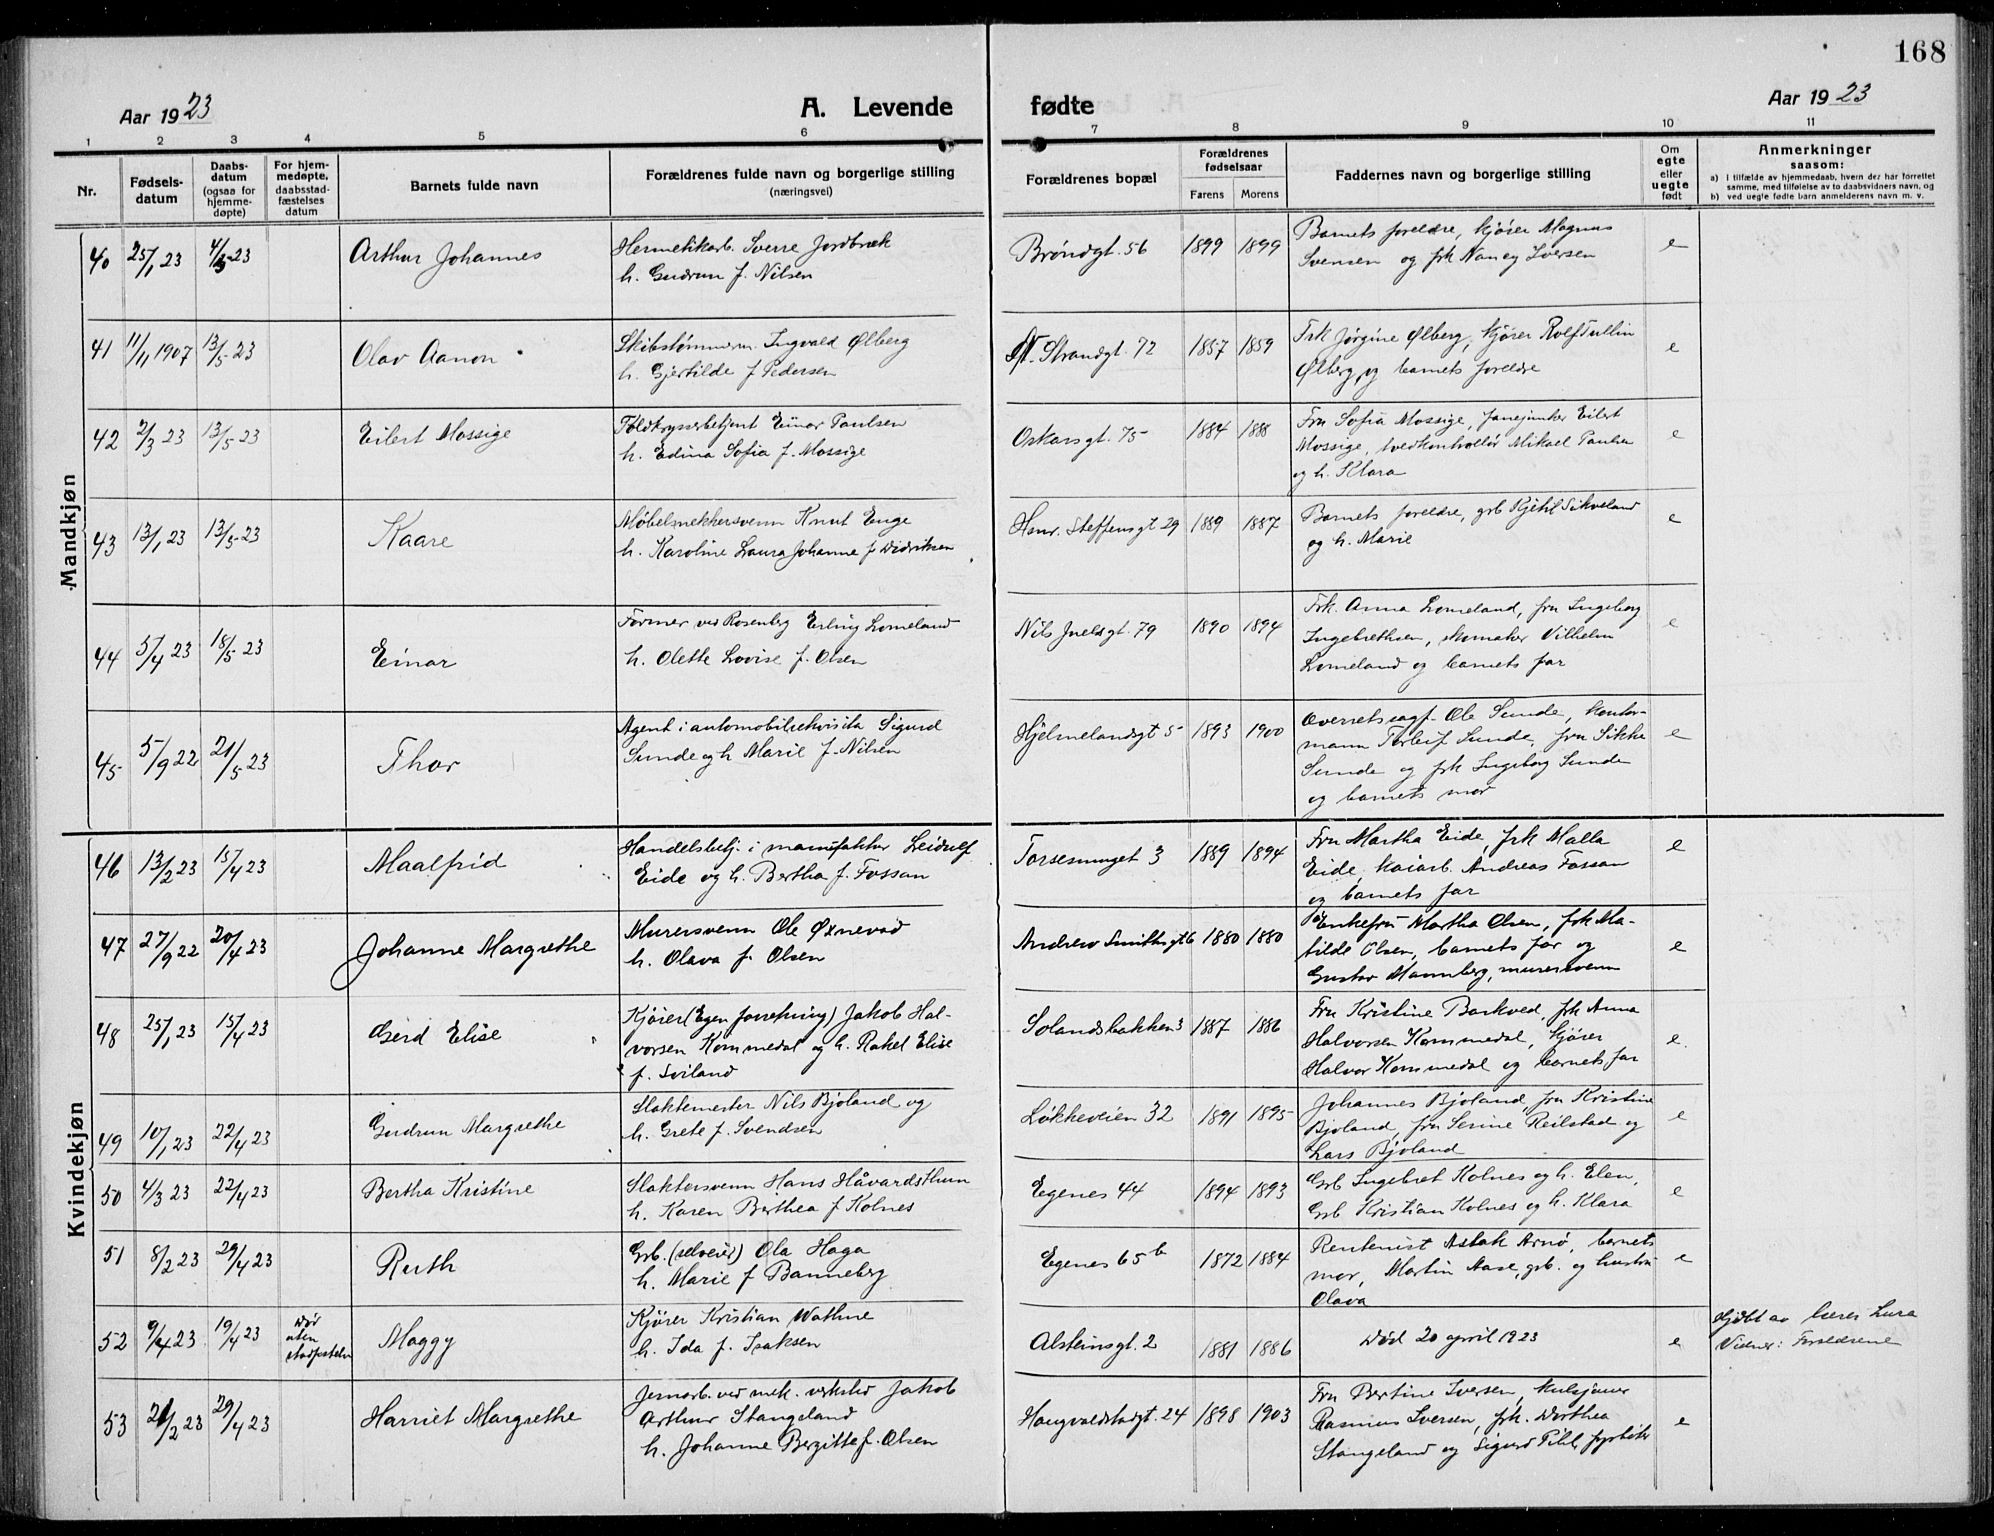 168
Aar 1923
A. Levende fødte
Aar 1923
1 2 3 4 5 6 7 8 9 10 11
Nr.
Fødsels-
datum
Daabs-
datum
(ogsaa for
hjemme-
døpte)
For hjem-
medøpte,
daabsstad-
fæstelses
datum
Barnets fulde navn
Forældrenes fulde navn og borgerlige stilling
(næringsvei)
Forældrenes bopæl
Forældrenes
fødselsaar
Farens Morens
Faddernes navn og borgerlige stilling
Om
egte
eller
uegte
født
Anmerkninger
saasom:
a) I tilfælde av hjemmedaab, hvem der har forrettet
samme, med tilføielse av to daabsvidners navn, og
b) ved uegte fødte barn anmelderens navn m. v.
Mandkjøn
40 25/1 23 4/5-23 Arthur Johannes
Hermetikarb. Sverre Jordbræk
h. Gudrun f. Nilsen
Brøndgt. 56 1899 1899
Barnets foreldre, kjører Magnus
Svensen og frk Nancy Iversen
e
41 11/11 1907 13/5-23 Olav Aanon
Skibstømmerm. Ingvald Ølberg
h. Gjertilde f Pedersen
N. Strandgt. 72 1857 1859
Frk Jørgine Ølberg, kjører Rolf Tullin
Ølberg, og barnets foreldre
e
42 2/3 23 13/5-23 Eilert Mossige
Toldkrysserbetjent Einar Paulsen
h. Edina Sofia f. Mossige
Oskarsgt. 75 1884 1888
Fru Sofia Mossige, fanejunker Eilert
Mossige, vedkontrollør Mikael Paulsen
og h. Klara
e
43 13/1 23 13/5-23 Kaare
Møbelsnekkersvenn Knut Enge
h. Karoline Laura Johanne f Didriksen
Henr. Steffensgt 29 1889 1887
Barnets foreldre, grb Kjetil Sikveland
og h. Marie
e
44 5/4 23 18/5-23 Einar
Former ved Rosenberg Erling Lomeland
h. Olette Lovise f. Olsen
Nils Juelsgt. 79 1890 1894
Frk. Anna Lomeland, fru Ingeborg
Ingebrethsen, skomaker Vilhelm
Lomeland og barnets far
e
45 5/9 22 21/5 23 Thor
Agent i automobilrekvisita Sigurd
Sunde og h Marie f. Nilsen
Hjelmelandsgt 5 1893 1900
Overretssagf. Ole Sunde, kontor-
mann Torleif Sunde, fru Sikke
Sunde og frk Ingeborg Sunde
og barnets mor
e
Kvindekjøn
46 13/2 23 15/4 23 Maalfrid
Handelsbetj. i manufaktur Leidulf
Eide og h. Bertha f. Fossan
Torsesmuget 3 1889 1894
Fru Martha Eide, frk Malla
Eide, kaiarb. Andreas Fossan
og barnets far
e
47 27/9 22 20/4 23 Johanne Margrethe
Murersvenn Ole Øxnevad
h. Olava f. Olsen
Andrew Smithsgt 6 1880 1880
Enkefru Martha Olsen, frk Ma-
tilde Olsen, barnets far og
Gustav Mannberg, murersvenn
e
48 25/1 23 15/4 23 Gerd Elise
Kjører (Egen forretning) Jakob Hal-
vorsen Kommedal og h. Rakel Elise
f. Sviland
Solandsbakken 3 1887 1886
Fru Kristine Barkved, frk Anna
Halvorsen Kommedal, kjører
Halvor Kommedal og barnets far
e.
49 10/1 23 22/4 23 Gudrun Margrethe
Slaktemester Nils Bjoland og
h. Grete f. Svendsen
Løkkeveien 32 1891 1895
Johannes Bjoland, fru Kristine
Bjoland, fru Serine Reilstad og
Lars Bjoland
e
50 4/3 23 22/4 23 Bertha Kristine
Slaktersvenn Hans Håvardsthun
h. Karen Berthea f Kolnes
Egenes 44 1894 1893
Grb Ingebret Kolnes og h. Elen,
Grb Kristian Kolnes og h. Klara
e
51 8/2 23 29/4 23 Ruth
Grb. (selveier) Ola Haga
h. Marie f Banneberg
Egenes 65 b 1872 1884
Rentenist Aslak Arnø, barnets
mor, Martin Aase, grb. og hustru
Olava
e
52 9/4 23 19/4 23 Død
uten
stadfestelse
Maggy
Kjører Kristian Wathne
h. Ida f. Isaksen
Alsteinsgt. 2 1881 1886
Død 20 april 1923
e
Hjdbt av lærer Lura
Vidner: Foreldrene
53 21/2 23 29/4 23 Harriet Margrethe
Jernarb. ved mek. verksted Jakob
Arthur Stangeland
h. Johanne Bergitte f. Olsen
Haugvaldstadgt. 24 1898 1903
Fru Bertine Iversen, kulsjauer
Rasmus Iversen, frk. Dorthea
Stangeland og Sigurd Pihl, fyrbøter
e